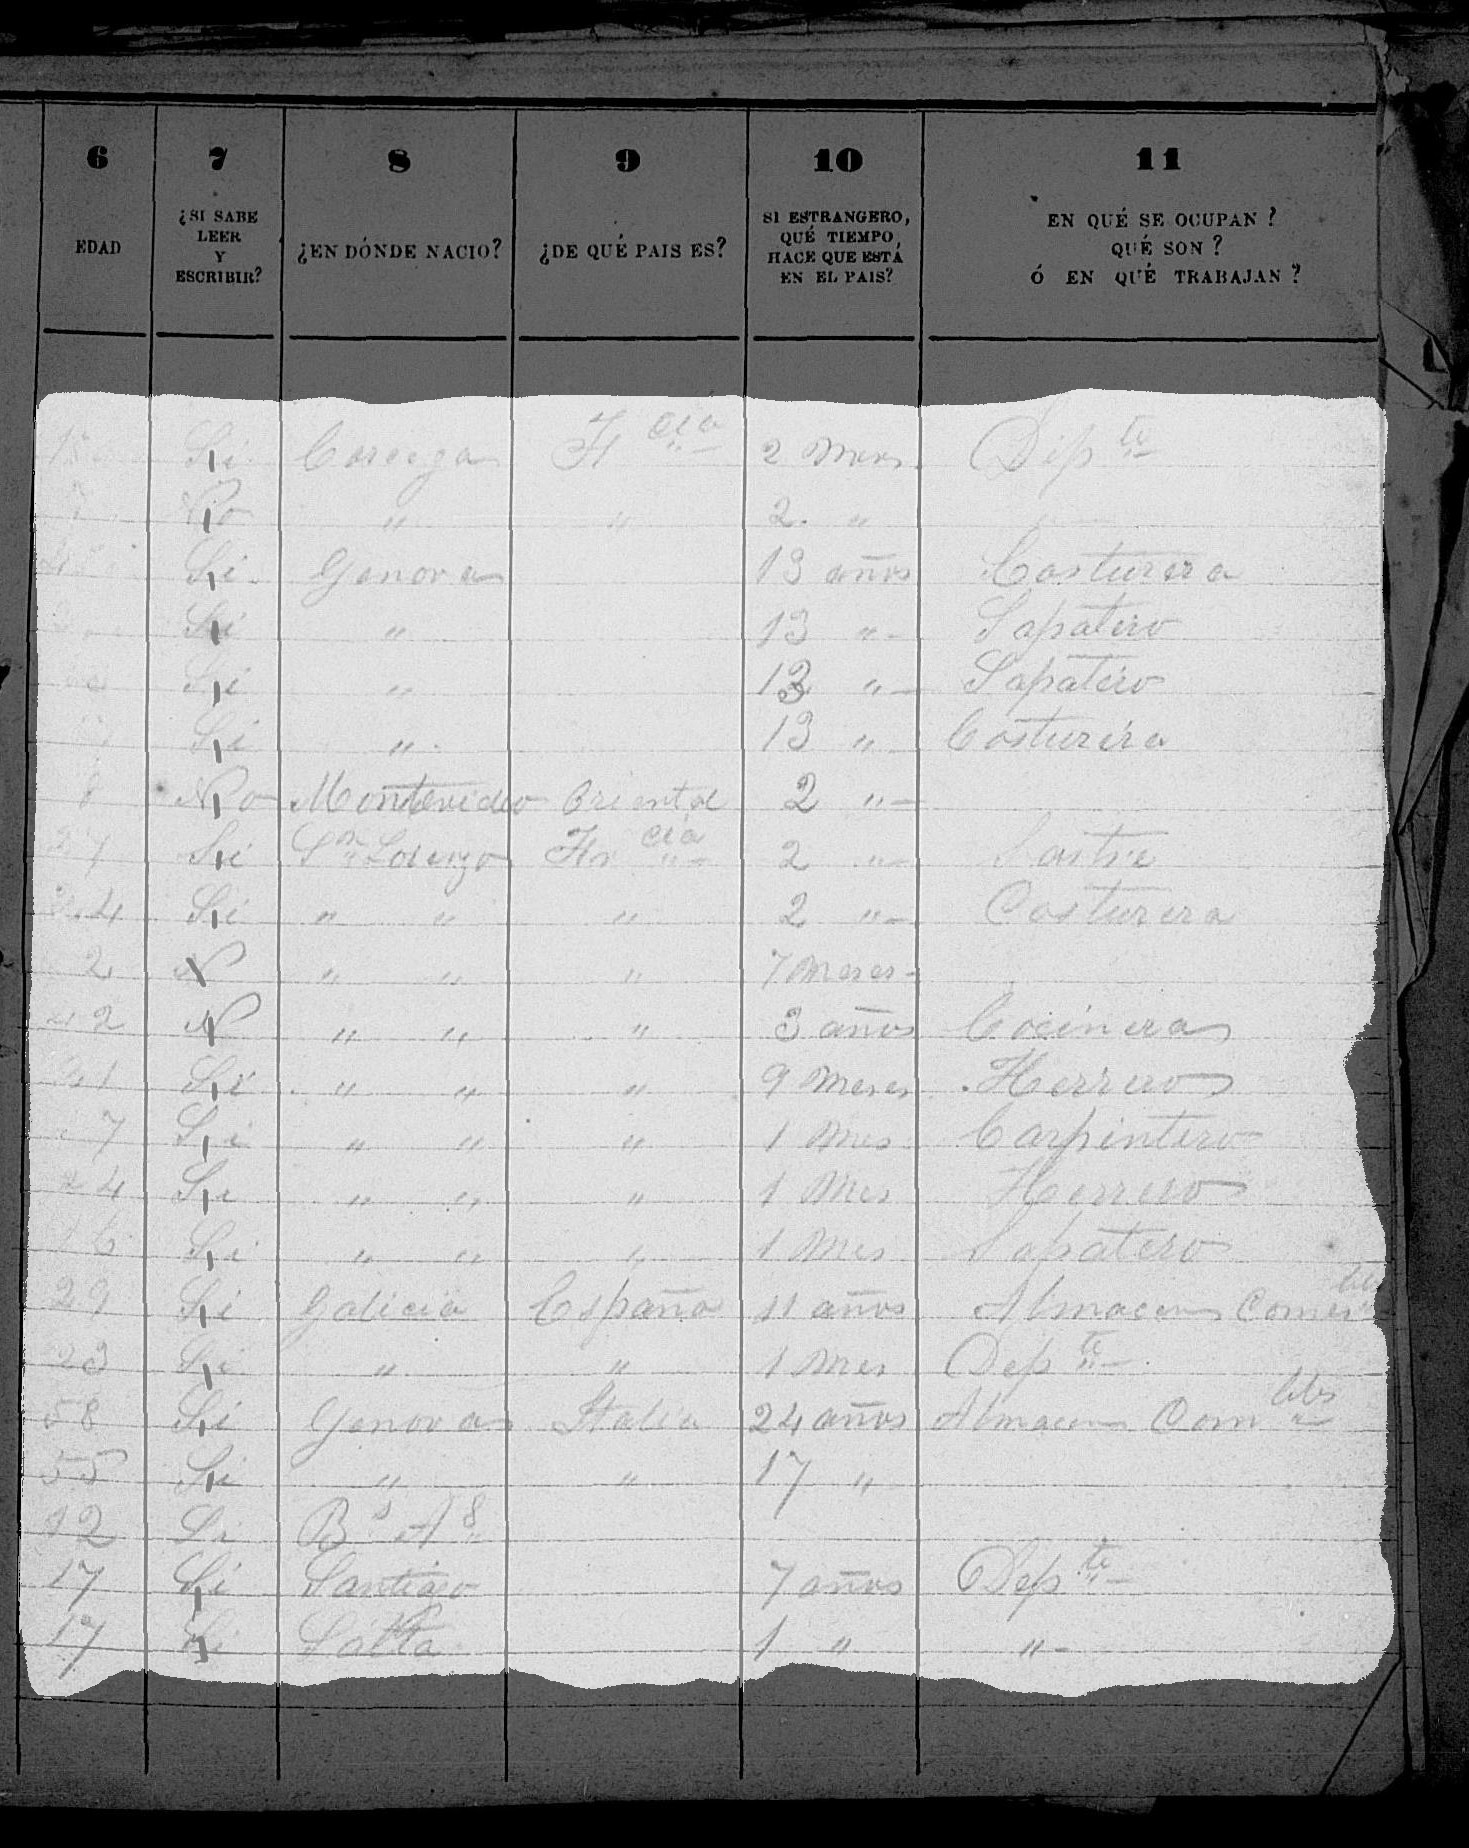 6 7 8 9 10 11
EDAD ¿SI SABE LEER Y ESCRIBIR? ¿EN DÓNDE NACIO? ¿DE QUÉ PAIS ES? SI ESTRANGERO, QUÉ TIEMPO HACE QUE ESTÁ EN EL PAIS? EN QUÉ SE OCUPAN? QUÉ SON? Ó EN QUÉ TRABAJAN?
Si Corcega Fr cia 2 Meses Dep te
No " " 2 "
Si Genova 13 años Costurera
Si " 13 " Sapatero
Si " 13 " Sapatero
Si " 13 " Costurera
No Montevideo Oriental 2 "
27 Si Sn Lorenzo Fr cia 2 " Sastre
24 Si " " " 2 " Costurera
2 N " " " 7 Meses
42 N " " " 3 años Cocinera
Si " " " 9 Meses Herrero
Si " " " 1 Mes Carpintero
24 Si " " " 1 Mes Herrero
16 Si " " " 1 Mes Sapatero
29 Si Galicia España 11 años Almacen Comes bles
23 Si " " 1 Mes Dep te
58 Si Genova Italia 24 años Almacen Com bles
55 Si " " 17 "
12 Si Bs As
17 Si Santiago 7 años Dep te
17 Si Salta 1 " "